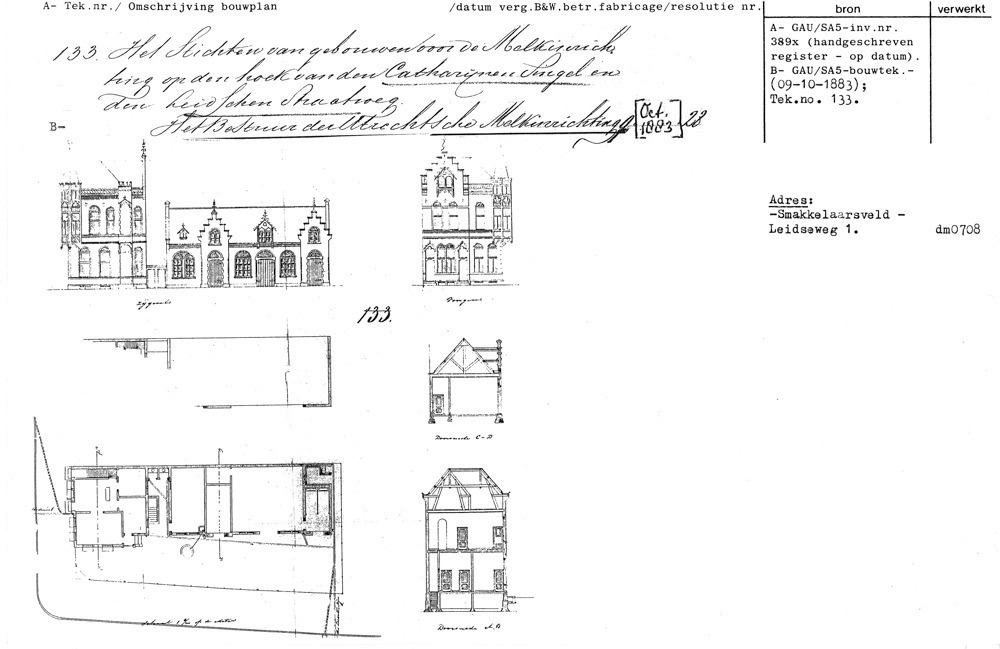 A- Tek.nr./ Omschrijving bouwplan /datum verg.B&W.betr.fabricage/resolutie nr.
bron
verwerkt
133. Het Stichten van gebouwen voor de Melkinrich-
ting op den hoek van den Catharijnen Singel en
den Leidschen Straatweg.
B-
Het Bestuur der Utrechtsche Melkinrichting
[Oct. 1883]
A- GAU/SA5-inv.nr.
389x (handgeschreven
register - op datum).
B- GAU/SA5-bouwtek.-
(09-10-1883);
Tek.no. 133.
Adres:
-Smakkelaarsveld -
Leidseweg 1.
dm0708
Zijgevel
Voorgevel
133.
Doorsnede C-D
Doorsnede A.B